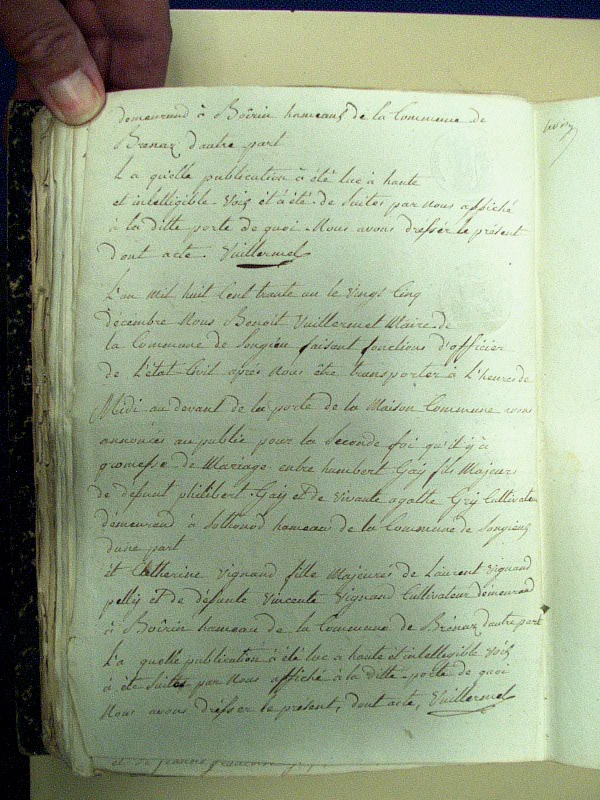 demeurand à Boirin hameauf de la Commune de
Brénaz d'autre part
La quelle publication à été lue à haute
et intelligible Voix et à été de Suites par nous affiché
à la ditte porte de quoi Nous avons dresser le présent
dont acte. Vuillermet
L'an Mil huit Cent trante un le Vingt Cinq
décembre Nous Benoit Vuillermet Maire de
la Commune de Songieu faisant fonctions d'officier
de L'état Civil après Nous être transporter à L'heures de
Midi au devant de la porte de la Maison Commune avons
annoncés au public pour la Seconde foi qu'il y à
promesse de Mariage entre humbert Gay fils Majeurs
de défunt philibert Gay et de Vivante agathe Gry Cultivateur
demeurand à Sothonod hameau de la Commune de Songieu
d'une part
et Catherine Vignand fille Majeures de Laurent Vignand
pellis et de défunte Vincente Vignand Cultivateur demeurand
à Boirin hameau de la Commune de Brénaz d'autre part
La quelle publication à été lue a haute et intelligible Voix
à été Suites par Nous affiché à la ditte porte de quoi
Nous avons dresser le présent, dont acte, Vuillermet